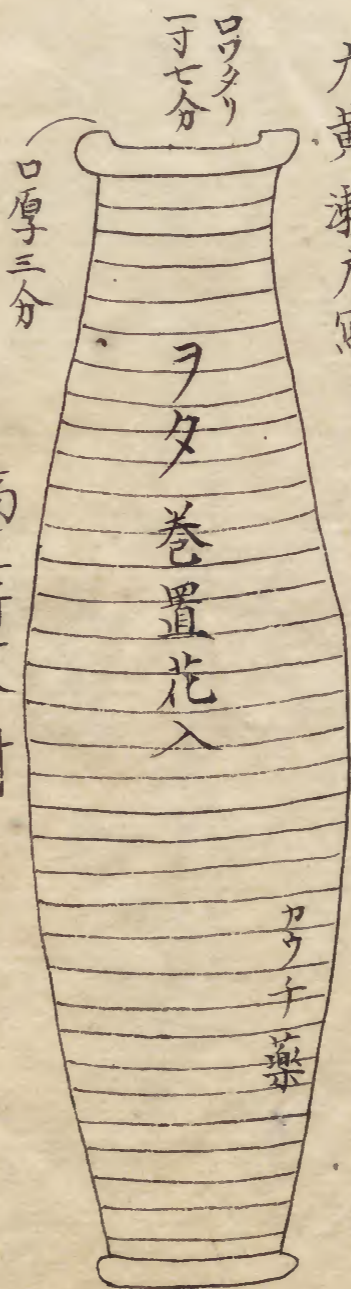 口ワタリ
一寸七分
口厚三分
ヲタ巻置花入
カウチ薬